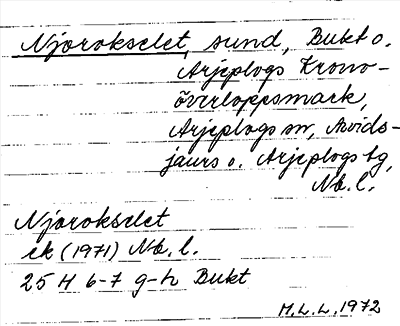 Njarokselet, sund, Bukt o.
Arjeplogs Krono-
överloppsmark,
Arjeplogs sn, Arvids-
jaurs o. Arjeplogs tg,
Nb. l.
Njarokselet
ek (1971) Nb. l.
25 H 6-7 g-h Bukt
M. L. L. 1972